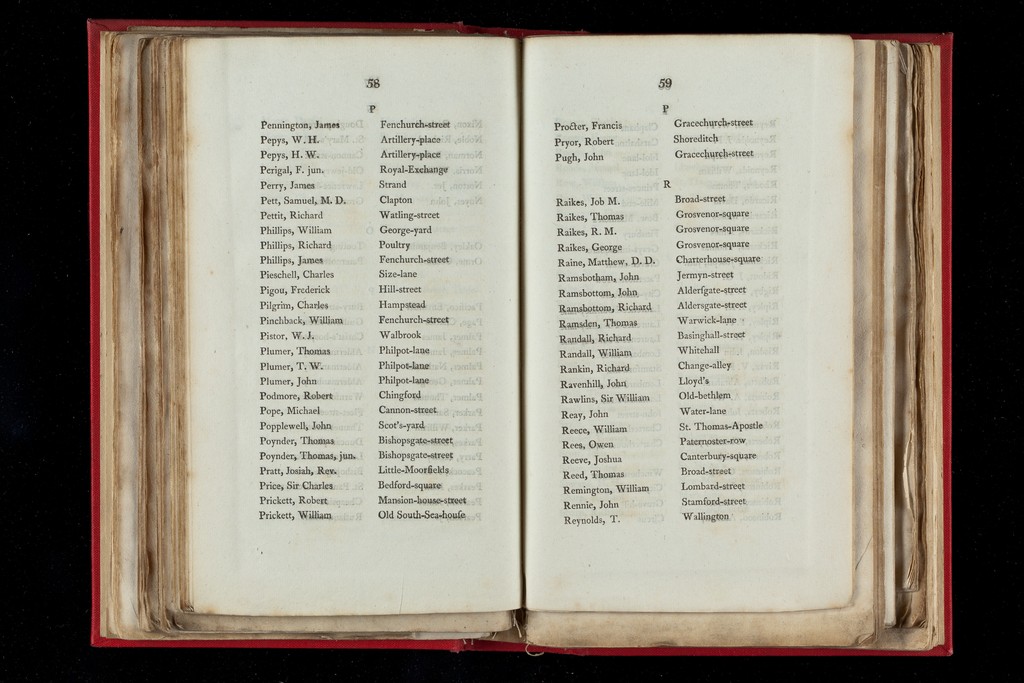 58
P
Pennington, James Fenchurch-street
Pepys, W. H. Artillery-place
Pepys, H. W. Artillery-place
Perigal, F. jun. Royal-Exchange
Perry, James Strand
Pett, Samuel, M. D. Clapton
Pettit, Richard Watling-street
Phillips, William George-yard
Phillips, Richard Poultry
Phillips, James Fenchurch-street
Pieschell, Charles Size-lane
Pigou, Frederick Hill-street
Pilgrim, Charles Hampstead
Pinchback, William Fenchurch-street
Pistor, W. J. Walbrook
Plumer, Thomas Philpot-lane
Plumer, T. W. Philpot-lane
Plumer, John Philpot-lane
Podmore, Robert Chingford
Pope, Michael Cannon-street
Popplewell, John Scot's-yard
Poynder, Thomas Bishopsgate-street
Poynder, Thomas, jun. Bishopsgate-street
Pratt, Josiah, Rev. Little-Moorfields
Price, Sir Charles Bedford-square
Prickett, Robert Mansion-house-street
Prickett, William Old South-Sea-houſe
59
P
Procter, Francis Gracechurch-street
Pryor, Robert Shoreditch
Pugh, John Gracechurch-street
R
Raikes, Job M. Broad-street
Raikes, Thomas Grosvenor-square
Raikes, R. M. Grosvenor-square
Raikes, George Grosvenor-square
Raine, Matthew, D. D. Charterhouse-square
Ramsbotham, John Jermyn-street
Ramsbottom, John Alderſgate-street
Ramsbottom, Richard Aldersgate-street
Ramsden, Thomas Warwick-lane
Randall, Richard Basinghall-street
Randall, William Whitehall
Rankin, Richard Change-alley
Ravenhill, John Lloyd's
Rawlins, Sir William Old-bethlem
Reay, John Water-lane
Reece, William St. Thomas-Apostle
Rees, Owen Paternoster-row
Reeve, Joshua Canterbury-square
Reed, Thomas Broad-street
Remington, William Lombard-street
Rennie, John Stamford-street
Reynolds, T. Wallington